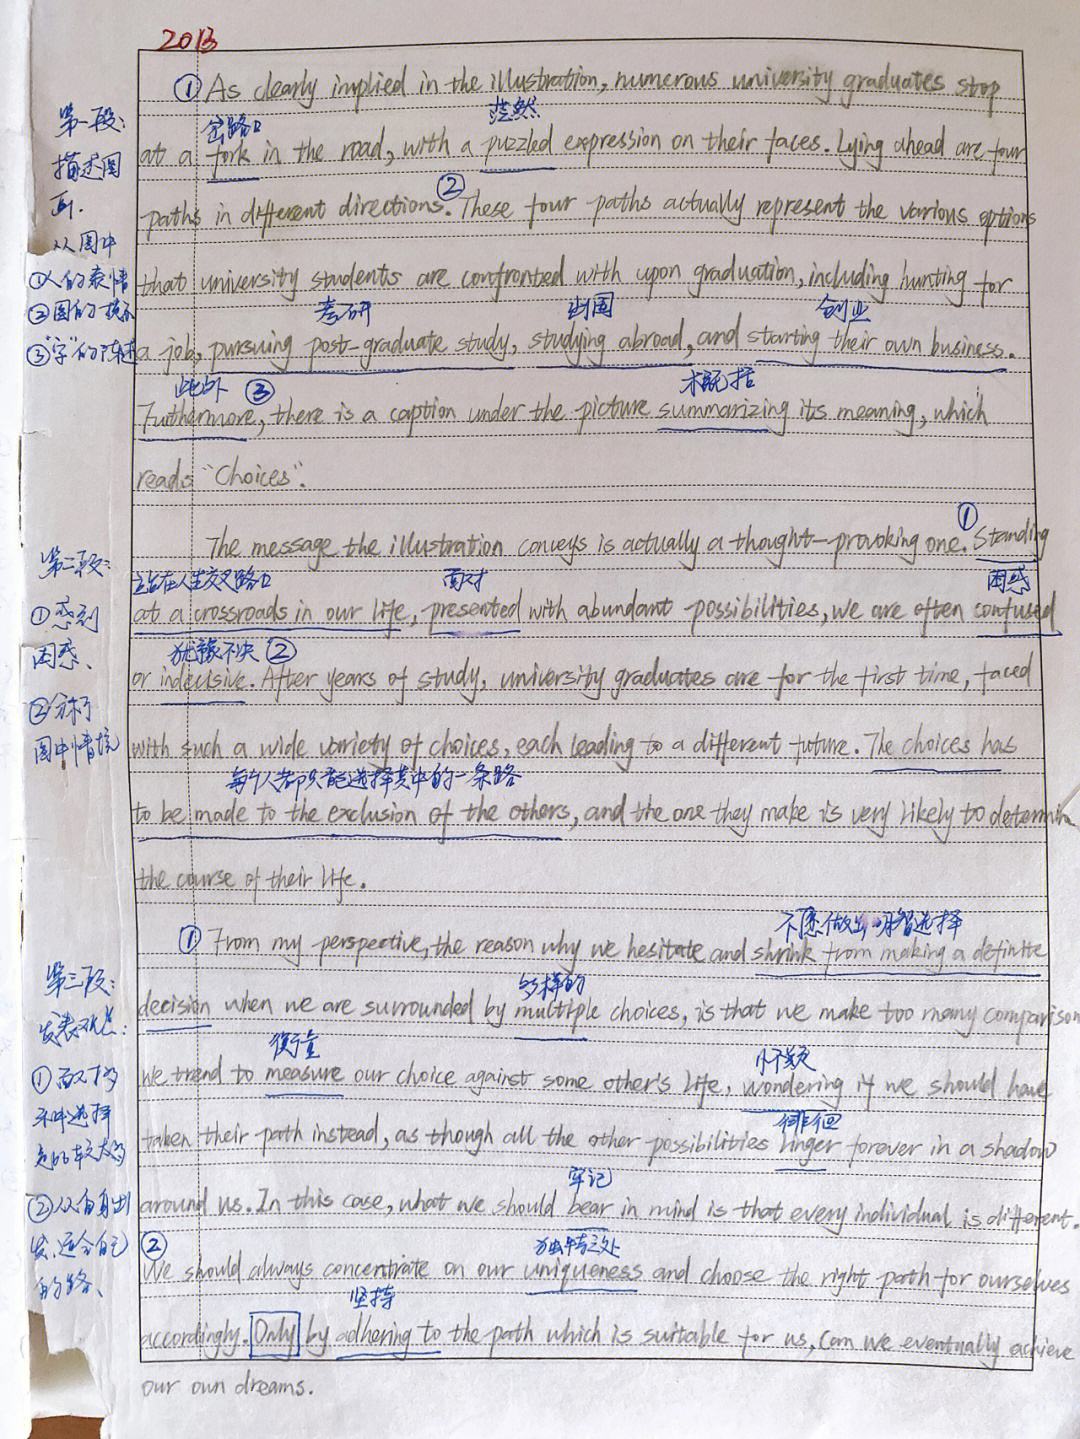 2013
① As clearly implied in the illustration, numerous university graduates stop
第一段:
岔路口
茫然
at a fork in the road, with a puzzled expression on their faces. Lying ahead are four
描述图
画.
paths in different directions. ② These four paths actually represent the various options
从图中
①人的表情
that university students are confronted with upon graduation, including hunting for
②图的
考研
出国
创业
③"字"的
a job, pursuing post-graduate study, studying abroad, and starting their own business.
此外 ③
概括
Futhermore, there is a caption under the picture summarizing its meaning, which
reads "Choices".
The message the illustration conveys is actually a thought-provoking one. ① Standing
第二段:
站在人生交叉路口
面对
困惑
①感到
at a crossroads in our life, presented with abundant possibilities, we are often confused
困惑、
犹豫不决 ②
or indecisive. After years of study, university graduates are for the first time, faced
②分析
图中情境
with such a wide variety of choices, each leading to a different future. The choices has
每个人都只能选择其中的一条路
to be made to the exclusion of the others, and the one they make is very likely to determin
the course of their life.
不愿做出明智选择
① From my perspective, the reason why we hesitate and shrink from making a definite
第三段:
多样的
decision when we are surrounded by multiple choices, is that we make too many comparison
发表观点:
衡量
怀疑
①面对多
we trend to measure our choice against some other's life, wondering if we should have
选择
徘徊
taken their path instead, as though all the other possibilities linger forever in a shadow
牢记
②从自身出
around us. In this case, what we should bear in mind is that every individual is different.
发,适合自己
②
独特之处
We should always concentrate on our uniqueness and choose the right path for ourselves
的路、
坚持
accordingly. Only by adhering to the path which is suitable for us, can we eventually achieve
our own dreams.